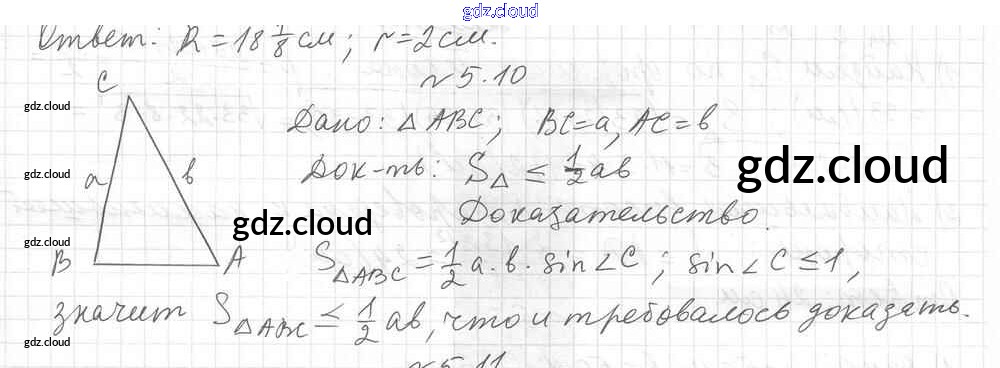 gdz.cloud
Ответ: R = 18 1/8 см; r = 2 см.
№ 5.10
C
gdz.cloud
Дано: △ ABC; BC = a, AC = b
a b
gdz.cloud
Док-ть: S△ ≤ 1/2 ab
gdz.cloud
gdz.cloud
Доказательство.
gdz.cloud
B A
S△ABC = 1/2 a · b · sin∠C; sin∠C ≤ 1,
значит S△ABC ≤ 1/2 ab, что и требовалось доказать.
gdz.cloud
№ 5.11